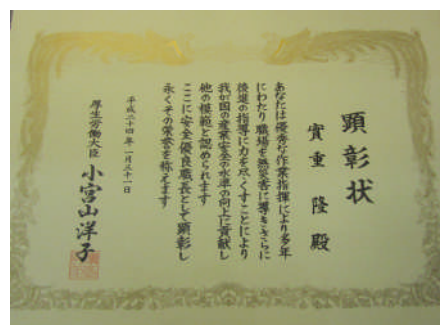 顕彰状
實重 隆 殿
あなたは優秀な作業指揮により多年
にわたり職場を無災害に導きさらに
後進の指導に力を尽くすことにより
我が国の産業安全の水準の向上に貢献し
他の模範と認められます
ここに安全優良職長として顕彰し
永くその栄誉を称えます
平成二十四年一月三十一日
厚生労働大臣 小宮山洋子